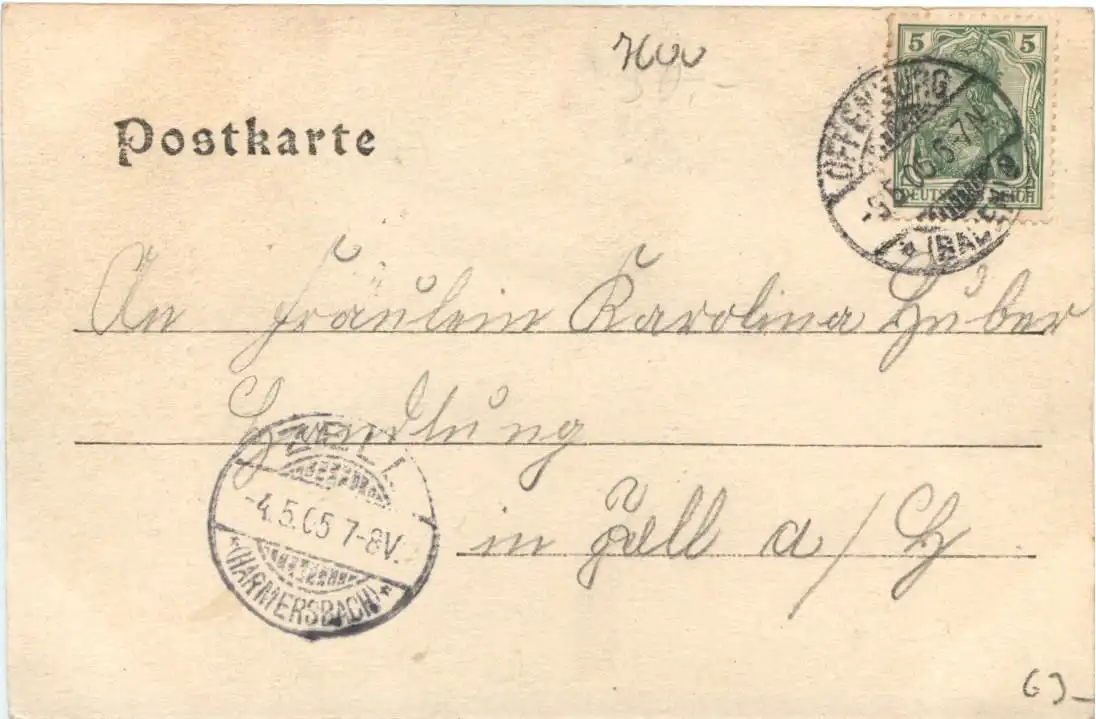 5 5
DEUTSCHES REICH
OFFENBURG
5.05.5-7N
* (BADEN)
Postkarte
An Fräulein Karolina Huber
Handlung
in Zell a/H
ZELL
-4.5.05 7-8V.
*(HARMERSBACH)*
63